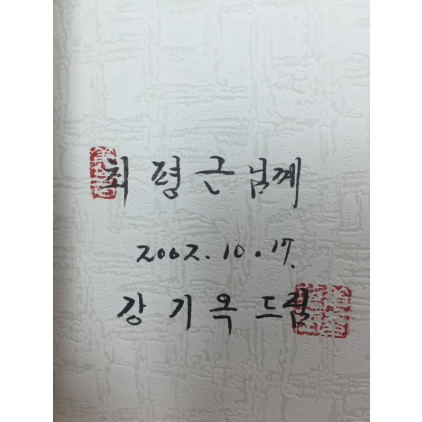 최평근님께
2002.10.17.
강기옥 드림